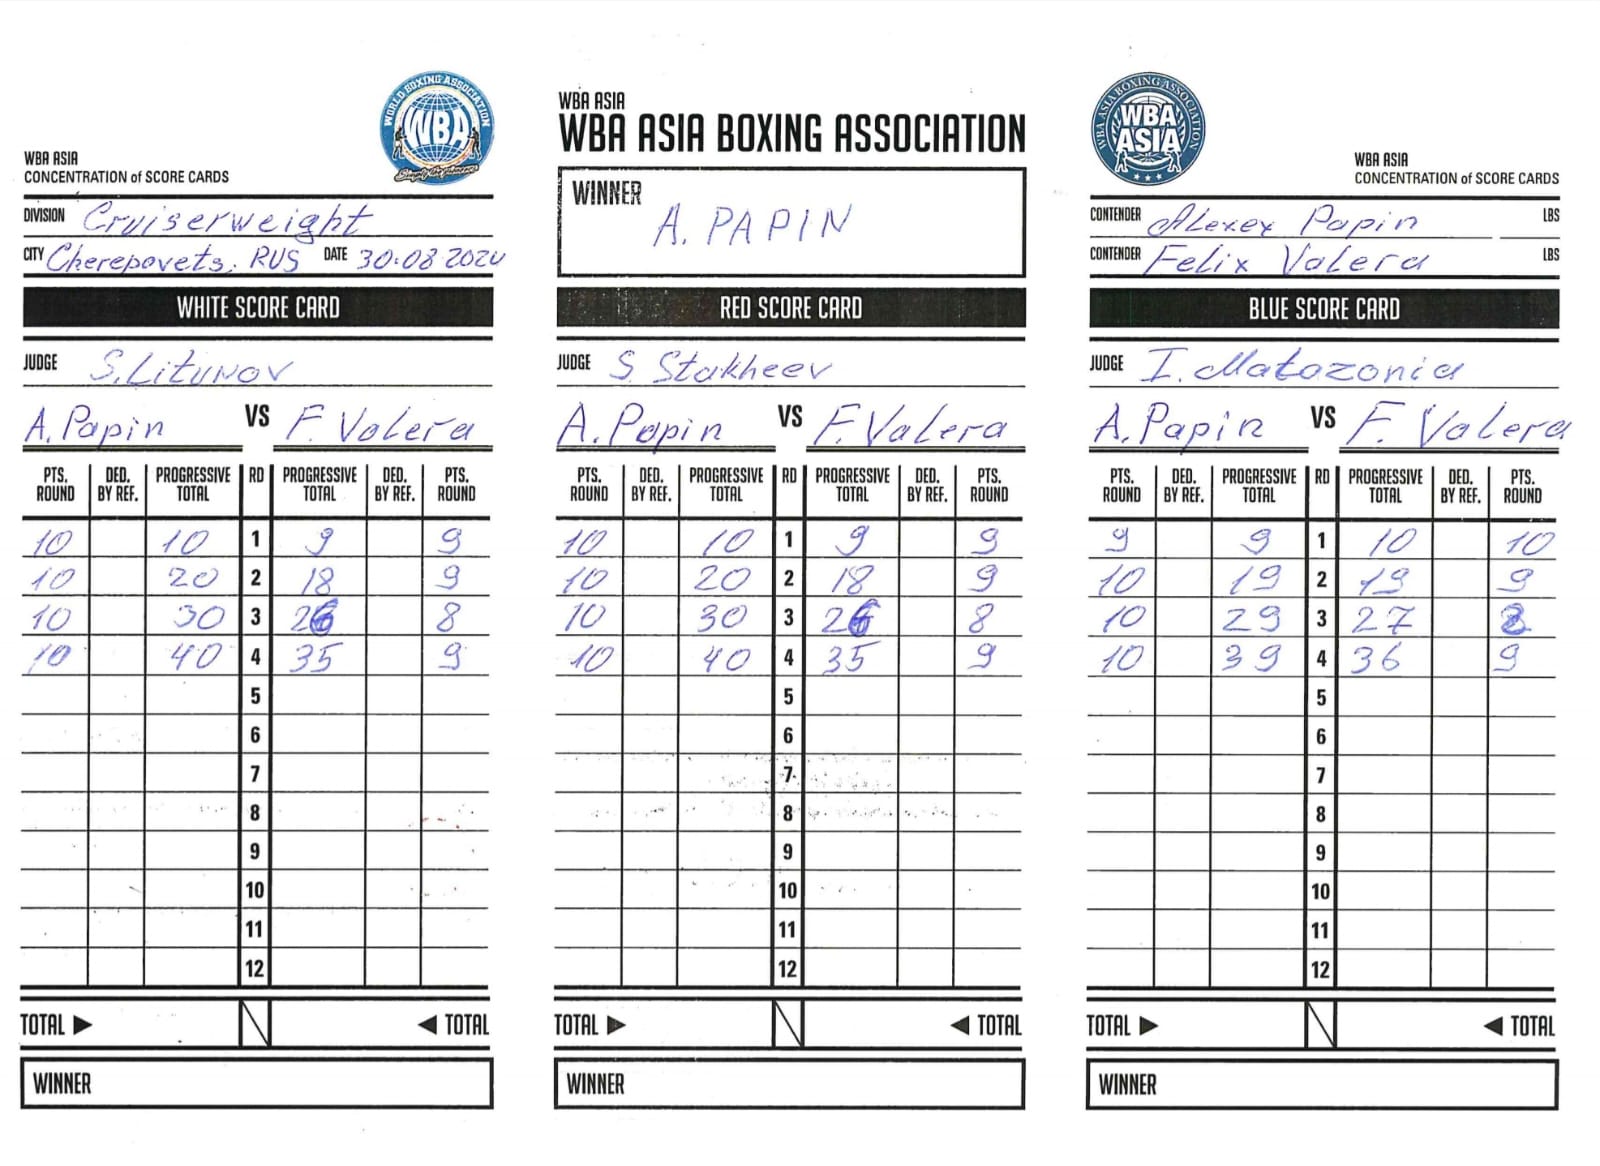 WORLD BOXING ASSOCIATION
WBA
Simply the pioneers
WBA ASIA
CONCENTRATION of SCORE CARDS
DIVISION Cruiserweight
CITY Cherepovets, RUS DATE 30.08 2024
WBA ASIA
WBA ASIA BOXING ASSOCIATION
WINNER
A. PAPIN
WBA ASIA BOXING ASSOCIATION
WBA
ASIA
WBA ASIA
CONCENTRATION of SCORE CARDS
CONTENDER Alexey Papin LBS
CONTENDER Felix Valera LBS
WHITE SCORE CARD
JUDGE S. Litunov
A. Papin VS F. Valera
PTS. ROUND DED. BY REF. PROGRESSIVE TOTAL RD PROGRESSIVE TOTAL DED. BY REF. PTS. ROUND
10 10 1 9 9
10 20 2 18 9
10 30 3 26 8
10 40 4 35 9
5
6
7
8
9
10
11
12
TOTAL ▶ ◀ TOTAL
WINNER
RED SCORE CARD
JUDGE S. Stakheev
A. Papin VS F. Valera
PTS. ROUND DED. BY REF. PROGRESSIVE TOTAL RD PROGRESSIVE TOTAL DED. BY REF. PTS. ROUND
10 10 1 9 9
10 20 2 18 9
10 30 3 26 8
10 40 4 35 9
5
6
7
8
9
10
11
12
TOTAL ▶ ◀ TOTAL
WINNER
BLUE SCORE CARD
JUDGE I. Matozonia
A. Papin VS F. Valera
PTS. ROUND DED. BY REF. PROGRESSIVE TOTAL RD PROGRESSIVE TOTAL DED. BY REF. PTS. ROUND
9 9 1 10 10
10 19 2 19 9
10 29 3 27 8
10 39 4 36 9
5
6
7
8
9
10
11
12
TOTAL ▶ ◀ TOTAL
WINNER